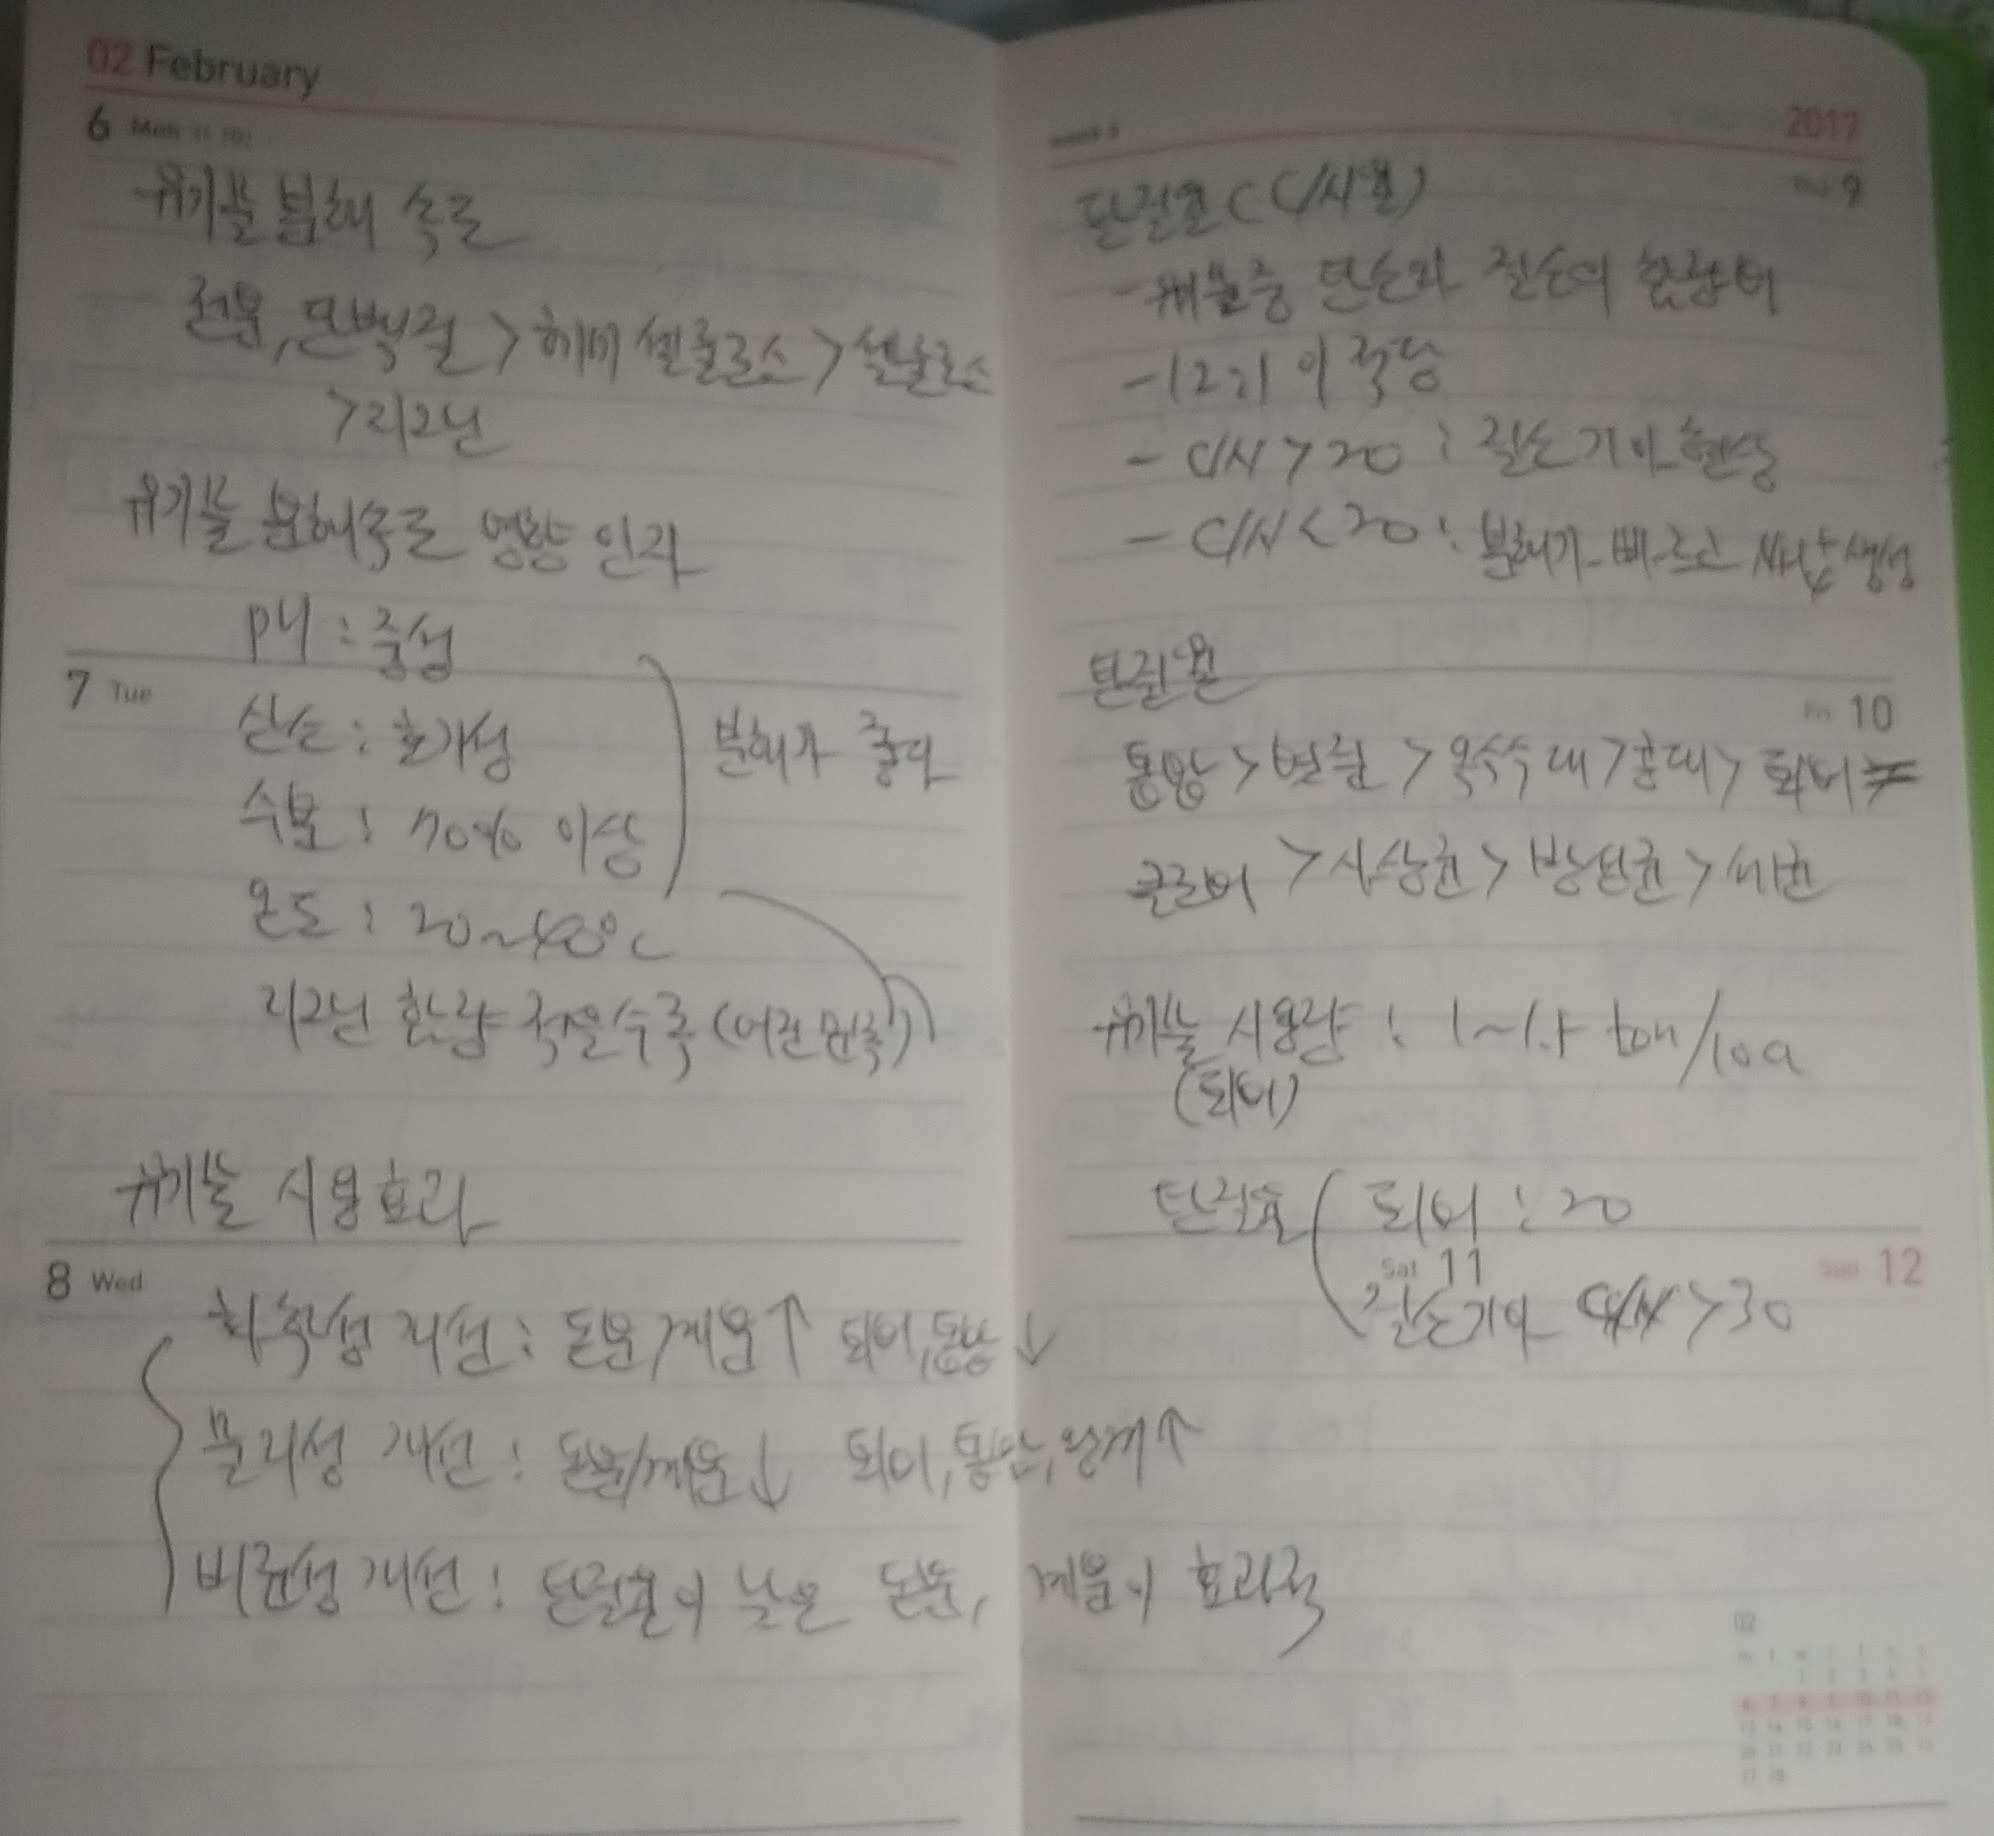 02 February
6 Mon
유기물 분해 속도
전분, 단백질 > 헤미셀룰로오스 > 셀룰로오스
> 리그닌
유기물 분해속도 영향 인자
pH : 중성
7 Tue
산소 : 호기성
분해가 좋다
수분 : 70% 이상
온도 : 20~40°C
리그닌 함량 적을수록 (어린 만큼)
유기물 시용효과
8 Wed
화학성 개선 : 돈분/계분↑ 퇴비, 톱밥↓
물리성 개선 : 돈분/계분↓ 퇴비, 톱밥, 왕겨↑
비료성 개선 : 탄질율이 낮은 돈분, 계분이 효과적
2017
9
탄질율 (C/N율)
- 유기물중 탄소와 질소의 함량비
- 12:1 이 적당
- C/N > 20 : 질소기아 현상
- C/N < 20 : 분해가 빠르고 생성
탄질율
Fri 10
톱밥 > 볏짚 > 옥수수대 > 콩대 > 퇴비
클로버 > 사상균 > 방선균 > 세균
유기물 시용량 : 1~1.5 ton/10a
(퇴비)
탄질율 퇴비 : 20
Sat 11
Sun 12
질소기아 C/N > 30
02